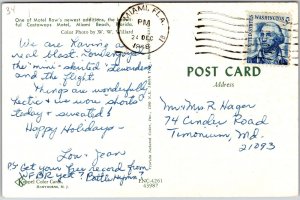 34
One of Motel Row's newest additions, the
ful Castaways Motel, Miami Beach, Florida.
Color Photo by W. W. Willard
MIAMI, FLA.
PM
24 DEC
1968
WASHINGTON
POST CARD
Address
We are having a
real blast. Loved
the "mini-skirted" stewardess
and the flight.
Things are wonderfully
hectic & we wore shorts
today & sweated!
Happy Holidays-
Lov, Joan
PS: Get your free record from
WFBR yet? Battle Hymn?
Mr & Mrs R Hager
74 Cinder Road
Timonium, Md.
21093
Color Card
ENC-4261
65987